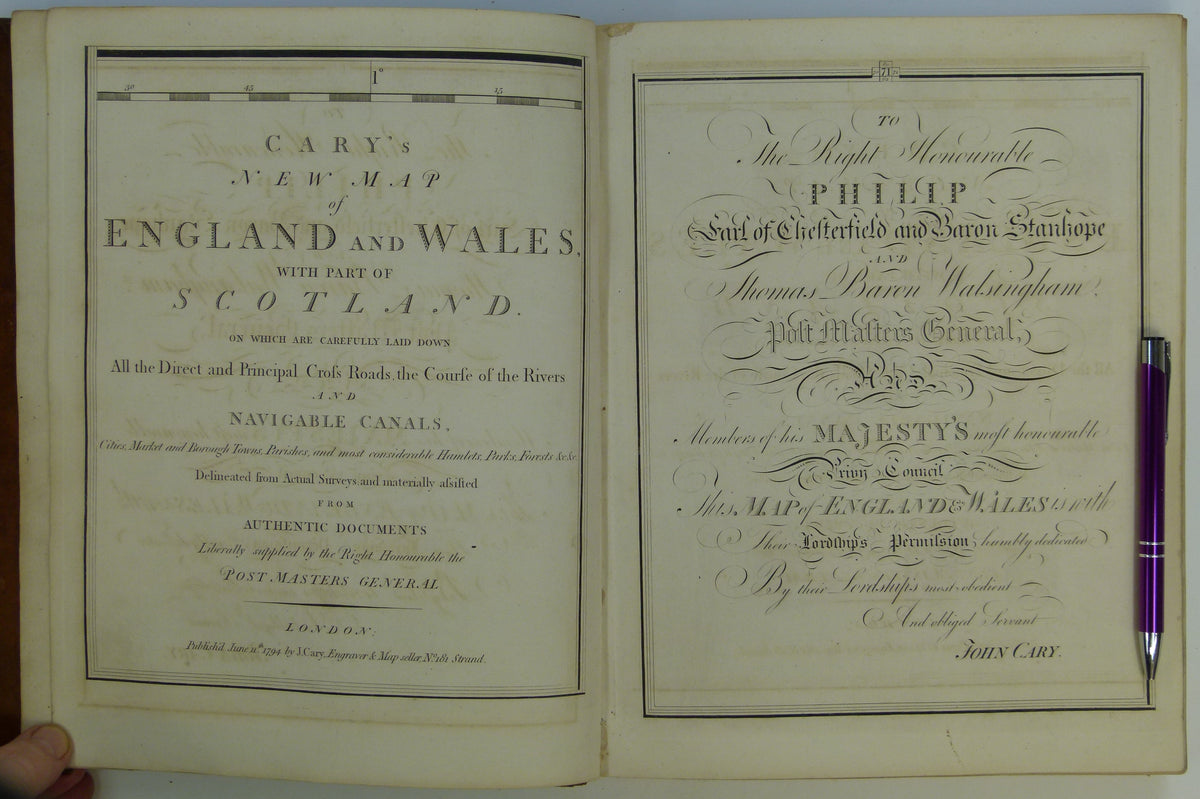 50 45 1° 15
CARY's
NEW MAP
of
ENGLAND AND WALES,
WITH PART OF
SCOTLAND.
ON WHICH ARE CAREFULLY LAID DOWN
All the Direct and Principal Croſs Roads, the Courſe of the Rivers
AND
NAVIGABLE CANALS,
Cities, Market and Borough Towns, Parishes, and most considerable Hamlets, Parks, Forests &c &c.
Delineated from Actual Surveys and materially aſsiſted
FROM
AUTHENTIC DOCUMENTS
Liberally supplied by the Right Honourable the
POST MASTERS GENERAL
LONDON:
Publish'd June 11th. 1794 by J. Cary, Engraver & Map seller, No. 181 Strand.
71
TO
The Right Honourable
PHILIP
Earl of Cheſterfield and Baron Stanhope
AND
Thomas Baron Walsingham,
Poſt Maſters General,
AND
Members of his MAJESTY'S moſt honourable
Privy Council
This MAP of ENGLAND & WALES is with
Their Lordship's Permiſsion humbly dedicated
By their Lordship's most obedient
And obliged Servant
JOHN CARY.